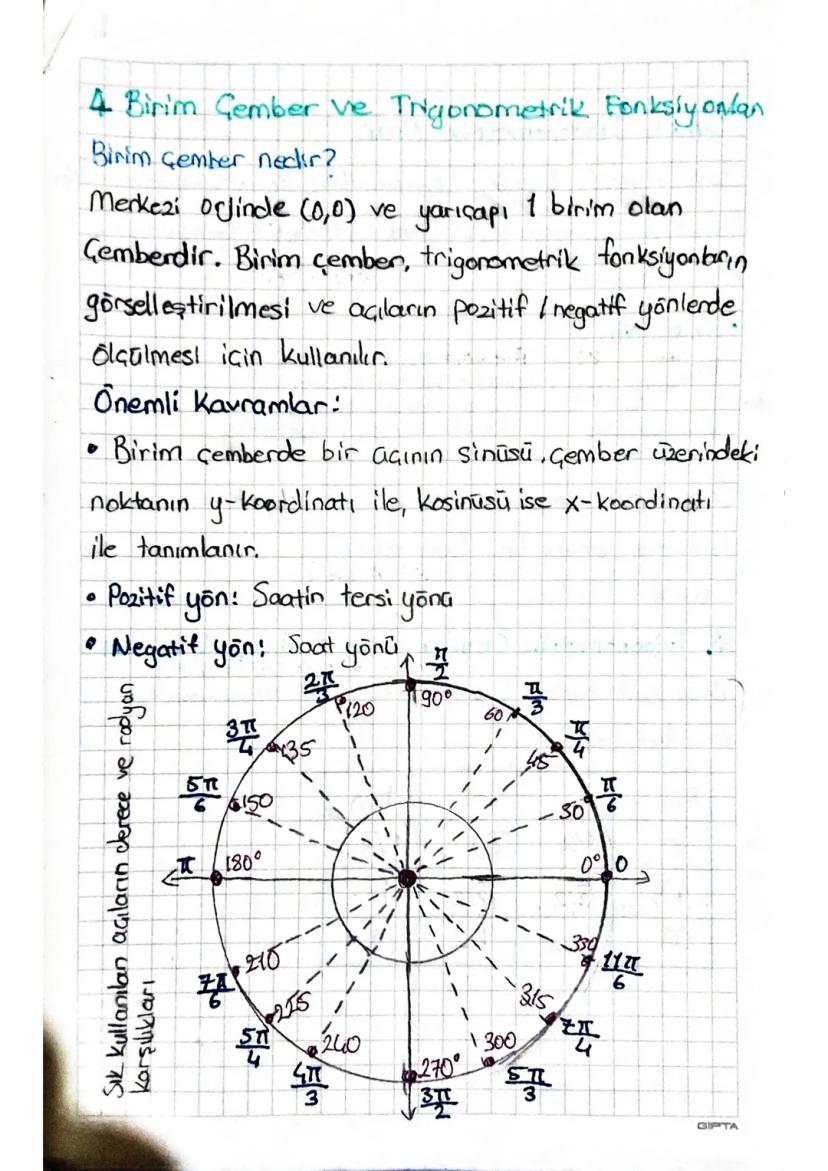 4 Birim Çember ve Trigonometrik Fonksiyonları
Birim çember nedir?
Merkezi orjinde (0,0) ve yarıçapı 1 birim olan
Çemberdir. Birim çember, trigonometrik fonksiyonların
görselleştirilmesi ve açıların pozitif / negatif yönlerde
ölçülmesi için kullanılır.
Önemli Kavramlar:
• Birim çemberde bir açının sinüsü, çember üzerindeki
noktanın y-koordinatı ile, kosinüsü ise x-koordinatı
ile tanımlanır.
• Pozitif yön: Saatin tersi yönü
• Negatif yön: Saat yönü
Sık kullanılan açıların derece ve radyan
karşılıkları
π/2
90°
π/3
60
π/4
45
π/6
30
0° 0
2π/3
120
3π/4
135
5π/6
150
π
180°
7π/6
210
5π/4
225
4π/3
240
270°
3π/2
300
5π/3
315
7π/4
330
11π/6
GIPTA